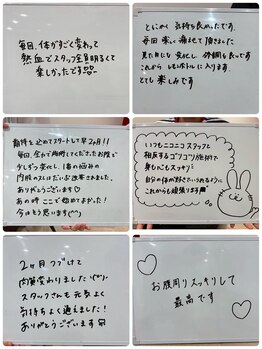 毎回、体がすごく変わって
熱血でスタッフ全員明るくて
楽しかったです
とにかく気持ち良かったです。
毎回楽しく通わせて頂きました
見た目にも変化し、体調も良いです
これから
とても楽しみです
期待を込めてスタートして早2ヶ月!!
毎回、全力で施術してくださったお陰で
少しずつ変化し、悩みの
内股のスレはだいぶ改善されました。
ありがとうございます♡
あの時ここで始めてよかった!
今はそう思います(^^)
いつもニコニコスタッフと
相反するゴツゴツ施術で
身も心もスッキリ
自分の体が好きでいられるように
これからも頑張ります
2ヶ月つづけて
内質変わりました
スタッフさんも元気よく
気持ちよく通えました!
ありがとうございます
お腹周りスッキリして
最高です